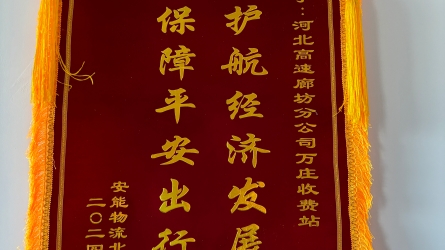 河北高速廊坊分公司万庄收费站
护航经济发展
保障平安出行
安能物流北
二〇二四